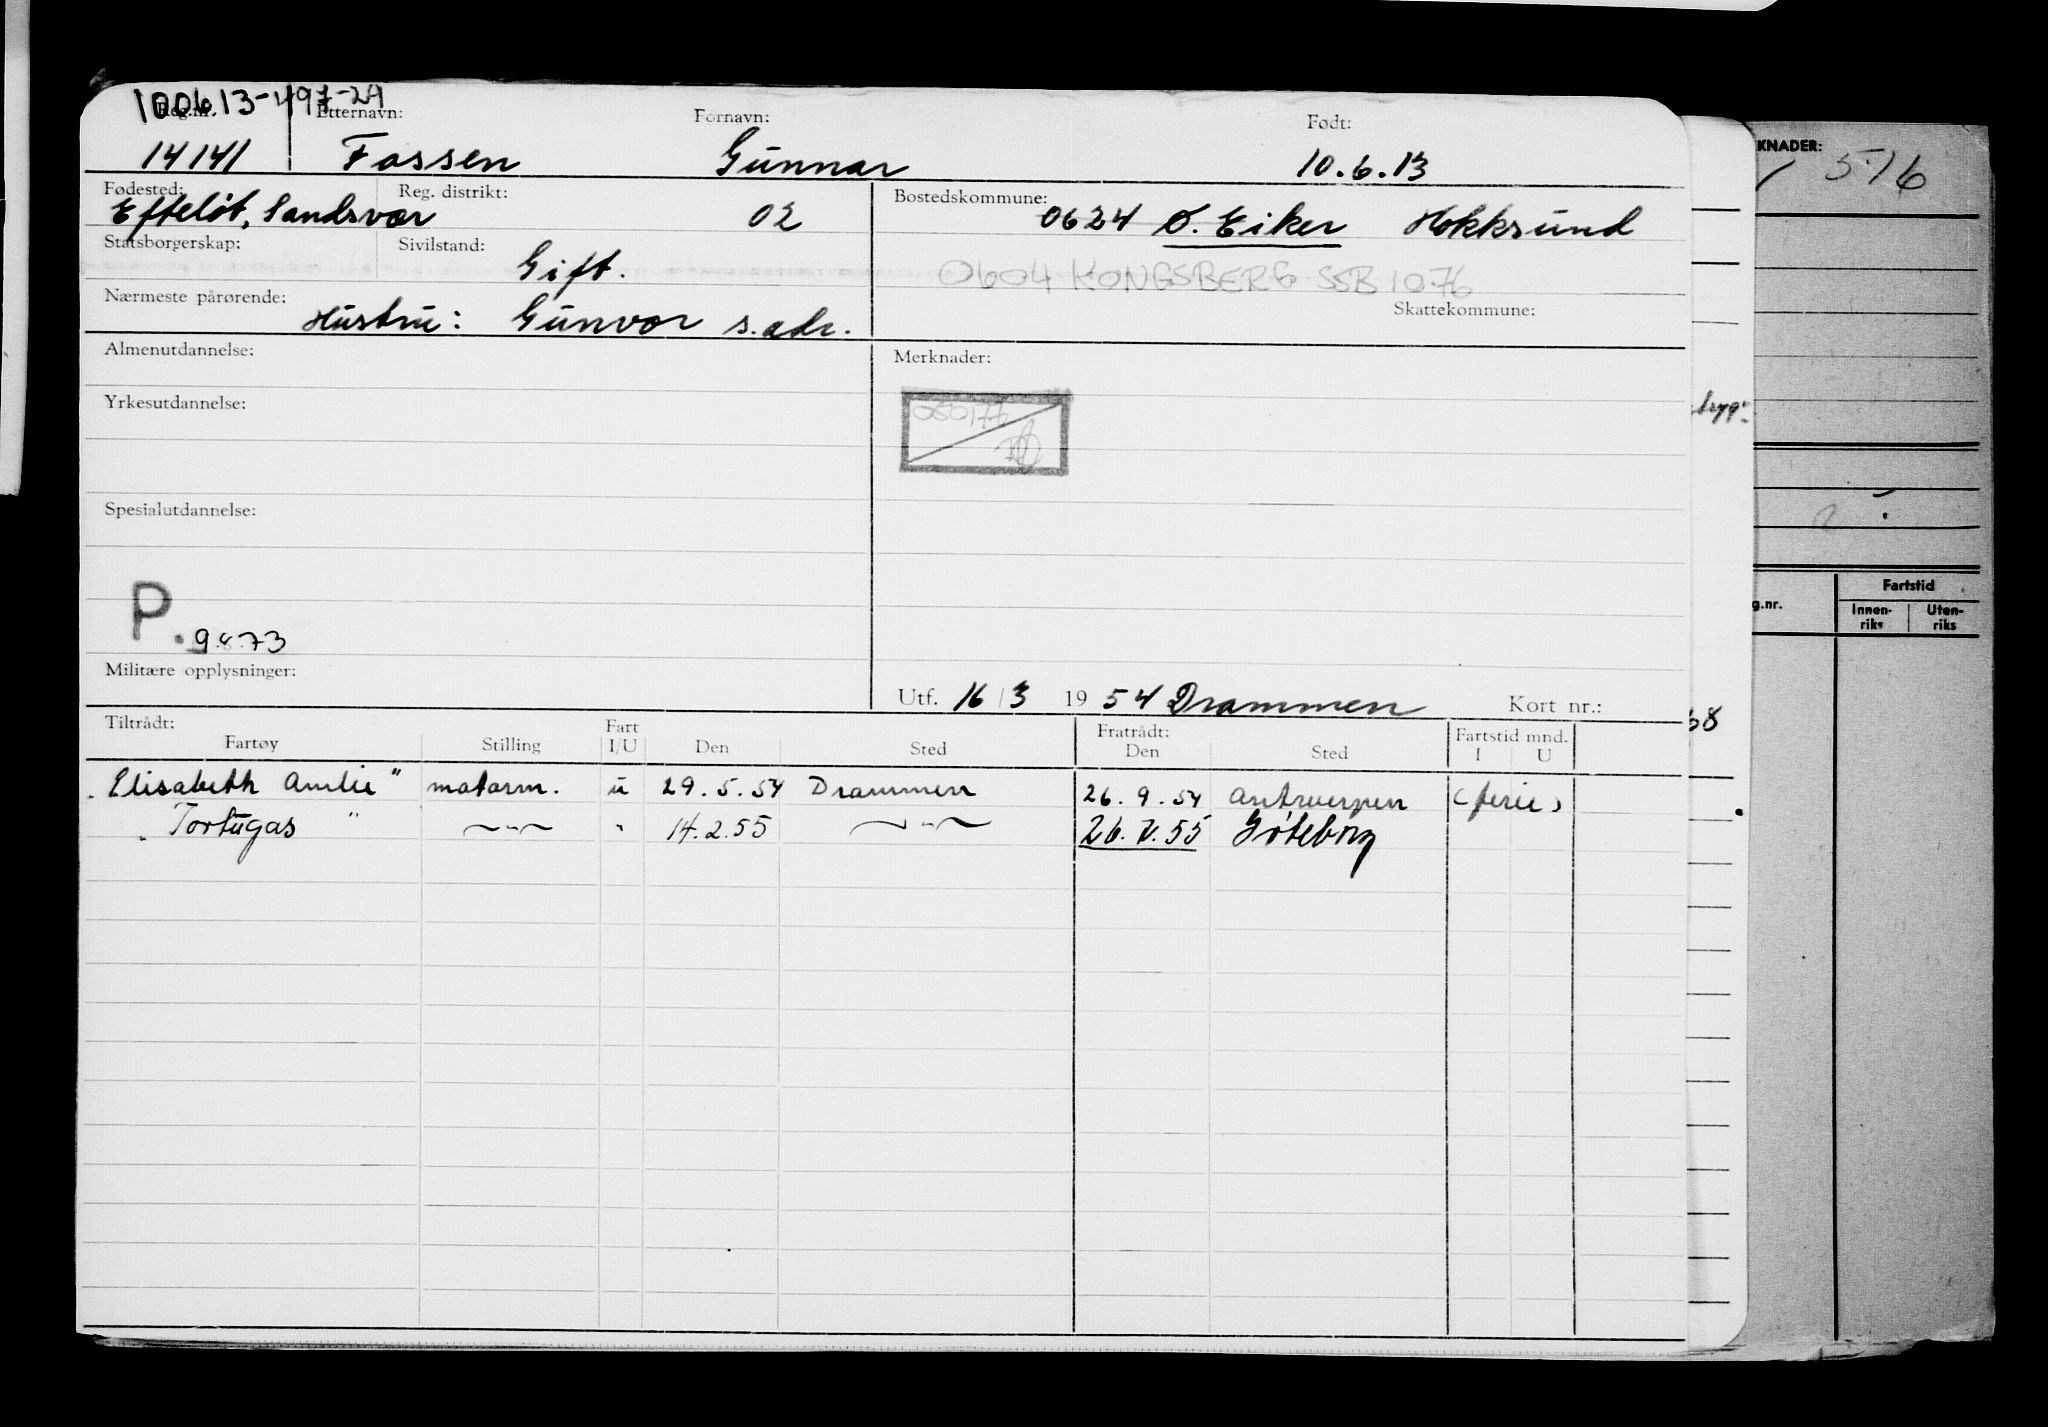 100613-497-29
Reg.nr. Etternavn: Fornavn: Født:
14141 Fossen Gunnar 10.6.13
Fødested: Reg. distrikt: Bostedskommune:
Efteløt, Sandsvær 02 0624 Ø. Eiker Hokksund
Statsborgerskap: Sivilstand:
Gift. 0604 KONGSBERG SSB 10.76
Nærmeste pårørende: Skattekommune:
Hustru: Gunvor s. adr.
Almenutdannelse: Merknader:
Yrkesutdannelse:
050177
Spesialutdannelse:
P. 9.8.73
Militære opplysninger:
Utf. 16/3 1954 Drammen Kort nr.:
Tiltrådt: Fart Fratrådt: Fartstid mnd.
Fartøy Stilling I/U Den Sted Den Sted I U
"Elisabeth Amlie" matorm. u 29.5.54 Drammen 26.9.54 Antwerpen (ferie)
"Tortugas" —"— " 14.2.55 —"— 26.7.55 Gøteborg
KNADER:
516
bygg.
68
g.nr. Fartstid
Innen-riks Uten-riks